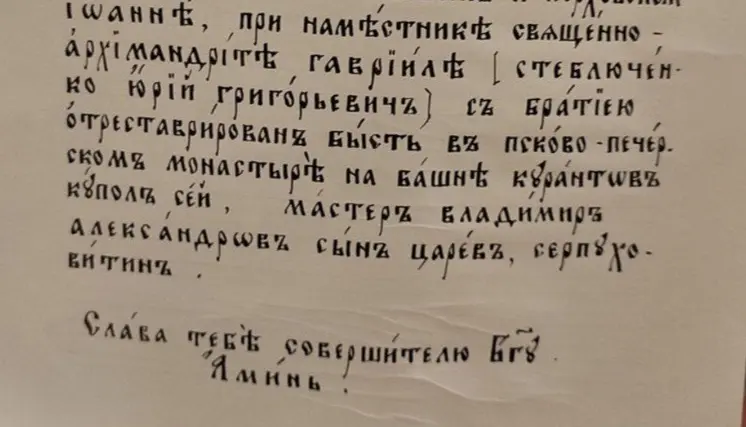 Іѡаннѣ, при намѣстникѣ свѧщенно-
а҆рхїмандрі́тѣ гаврїи́лѣ [стеблюче́н-
ко ю҆́рїй григо́рьевичъ] съ бра́тїею
ѻ҆треставри́рованъ бы́сть въ пско́во-пече́р-
скомъ монастырѣ̀ на ба́шнѣ кꙋра́нтѡвъ
кꙋ́полъ се́й, ма́стеръ влади́миръ
алекса́ндрѡвъ сы́нъ царе́въ, серпꙋхо-
ви́тинъ.
Сла́ва тебѣ̀ соверши́телю Бг҃ꙋ.
А҆ми́нь.